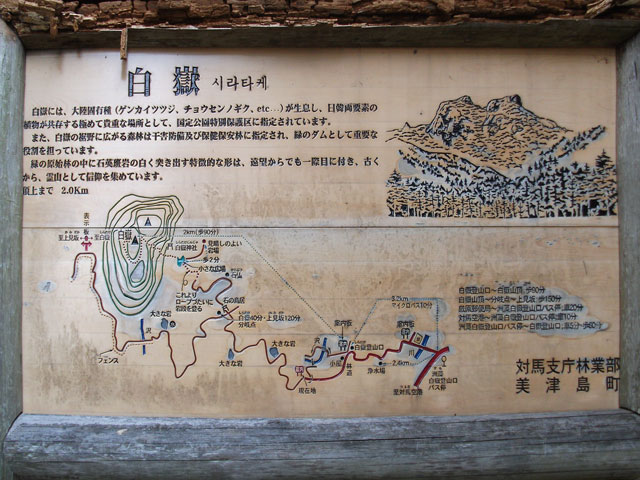 白嶽 시라타케
白嶽には、大陸固有種(ゲンカイツツジ、チョウセンノギク、etc…)が生息し、日韓両要素の
植物が共存する極めて貴重な場所として、国定公園特別保護区に指定されています。
また、白嶽の裾野に広がる森林は干害防備及び保健保安林に指定され、緑のダムとして重要な
役割を担っています。
緑の原始林の中に石英斑岩の白く突き出す特徴的な形は、遠望からでも一際目に付き、古く
から、霊山として信仰を集めています。
頂上まで 2.0Km
表示板
至上見坂
至白嶽
白嶽
2km(歩90分)
白嶽神社
見晴しのよい
岩場
歩2分
小さな広場
これより
ロープづたいに
岩段を登る
石の鳥居
大きな岩
沢
白嶽40分・上見坂120分
分岐点
フェンス
大きな岩
大きな岩
現在地
沢
小屋
案内板
白嶽登山口
林道
3.2km
マイクロバス10分
案内板
川
浄水場
2.4km
至対馬空港
洲藻
白嶽登山口
バス停
白嶽登山口~白嶽山頂 歩90分
白嶽山頂~分岐点~上見坂 歩150分
対馬空港~洲藻白嶽登山口バス停 車10分
対馬支庁林業部
美津島町